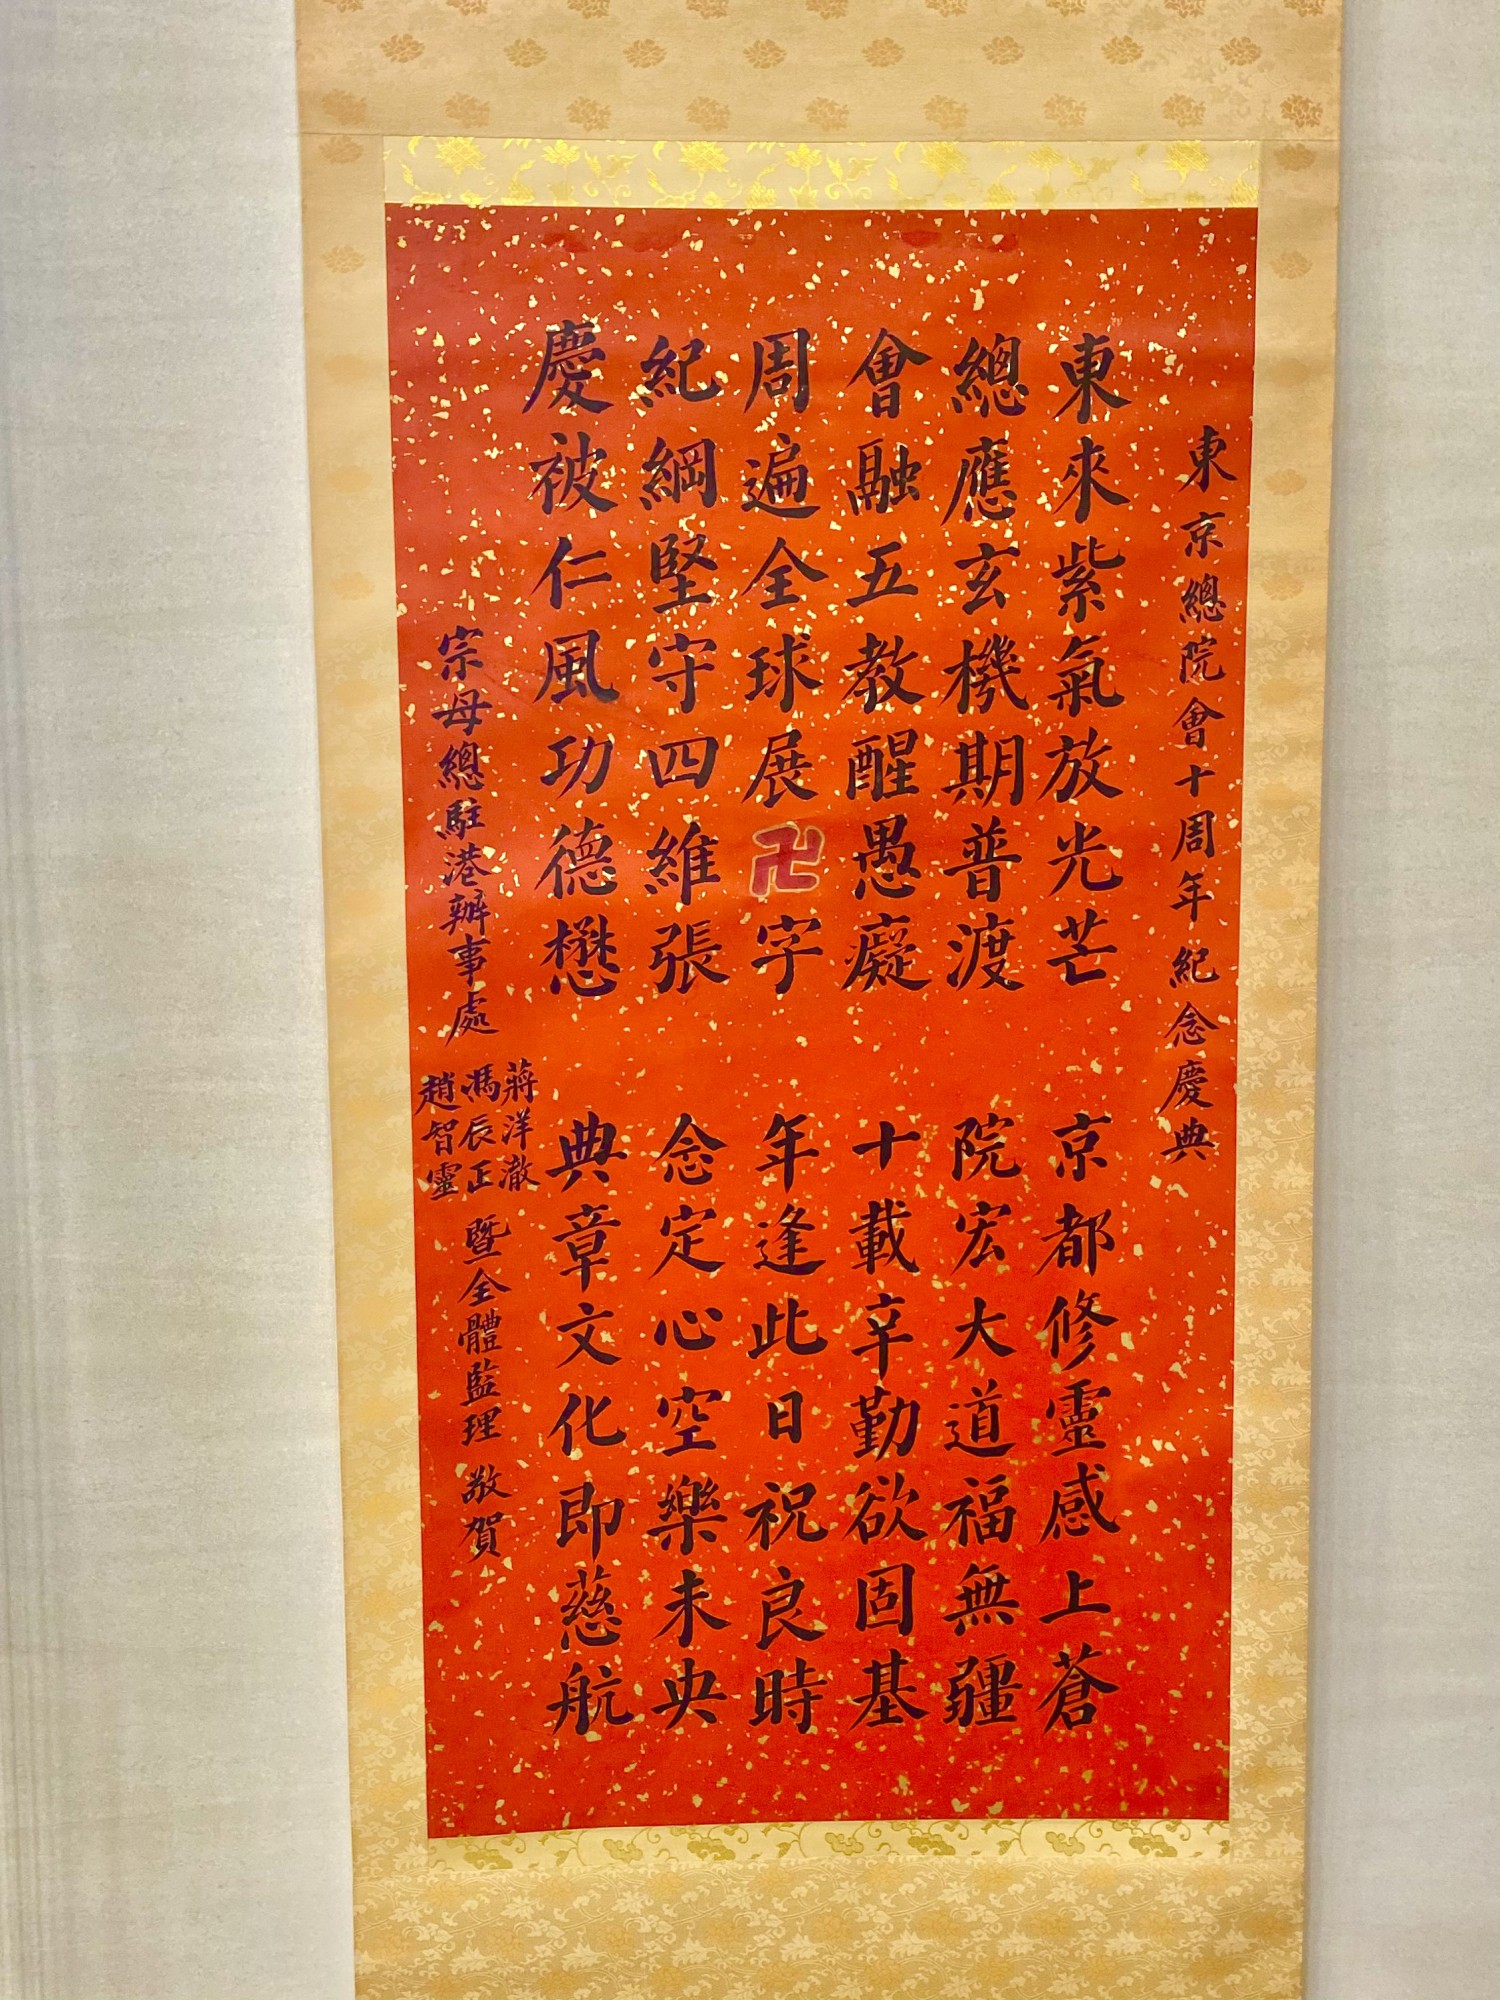 東京總院會十周年紀念慶典
東來紫氣放光芒 京都修靈感上蒼
總應玄機期普渡 院宏大道福無疆
會融五教醒愚癡 十載辛勤欲固基
周遍全球展卍字 年逢此日祝良時
紀綱堅守四維張 念定心空樂未央
慶被仁風功德懋 典章文化即慈航
宗母總駐港辦事處
蔣洋澈
馮辰正
趙智靈
暨全體監理 敬賀